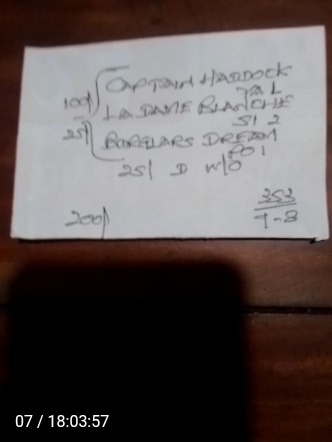 CAPTAIN HADDOCK
100/ TAL
LA DAME BLANCHE
25/ SI 2
BURGLARS DREAM
PO 1
25/ D W/O
200/
353
7-8
07 / 18:03:57